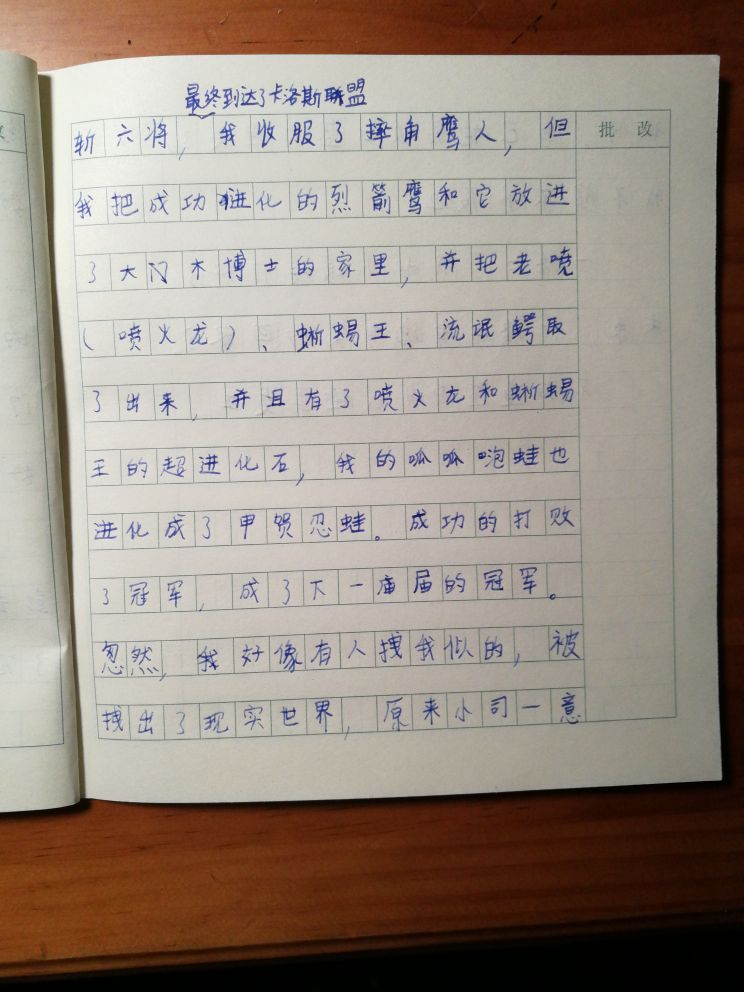 最终到达了卡洛斯联盟
斩六将，我收服了摔角鹰人，但
批改
我把成功进化的烈箭鹰和它放进
了大门木博士的家里，并把老喷
（喷火龙）、蜥蜴王、流氓鳄取
了出来，并且有了喷火龙和蜥蜴
王的超进化石，我的呱呱咆蛙也
进化成了甲贺忍蛙。成功的打败
了冠军，成了下一庙届的冠军。
忽然，我好像有人拽我似的，被
拽出了现实世界，原来小司一意